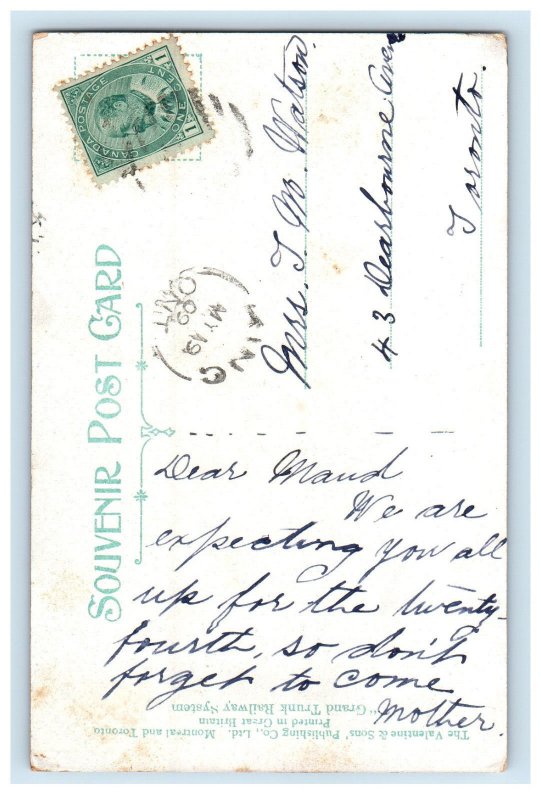 SOUVENIR POST CARD
CANADA POSTAGE
ONE CENT
1 1
KING
MY 19
09
ONT
Mrs. T. W. Watson.
43 Dearbourne Ave
Toronto.
Dear Maud
We are
expecting you all
up for the twenty-
fourth, so don't
forget to come
Mother.
The Valentine & Sons' Publishing Co., Ltd. Montreal and Toronto
Printed in Great Britain
"Grand Trunk Railway System